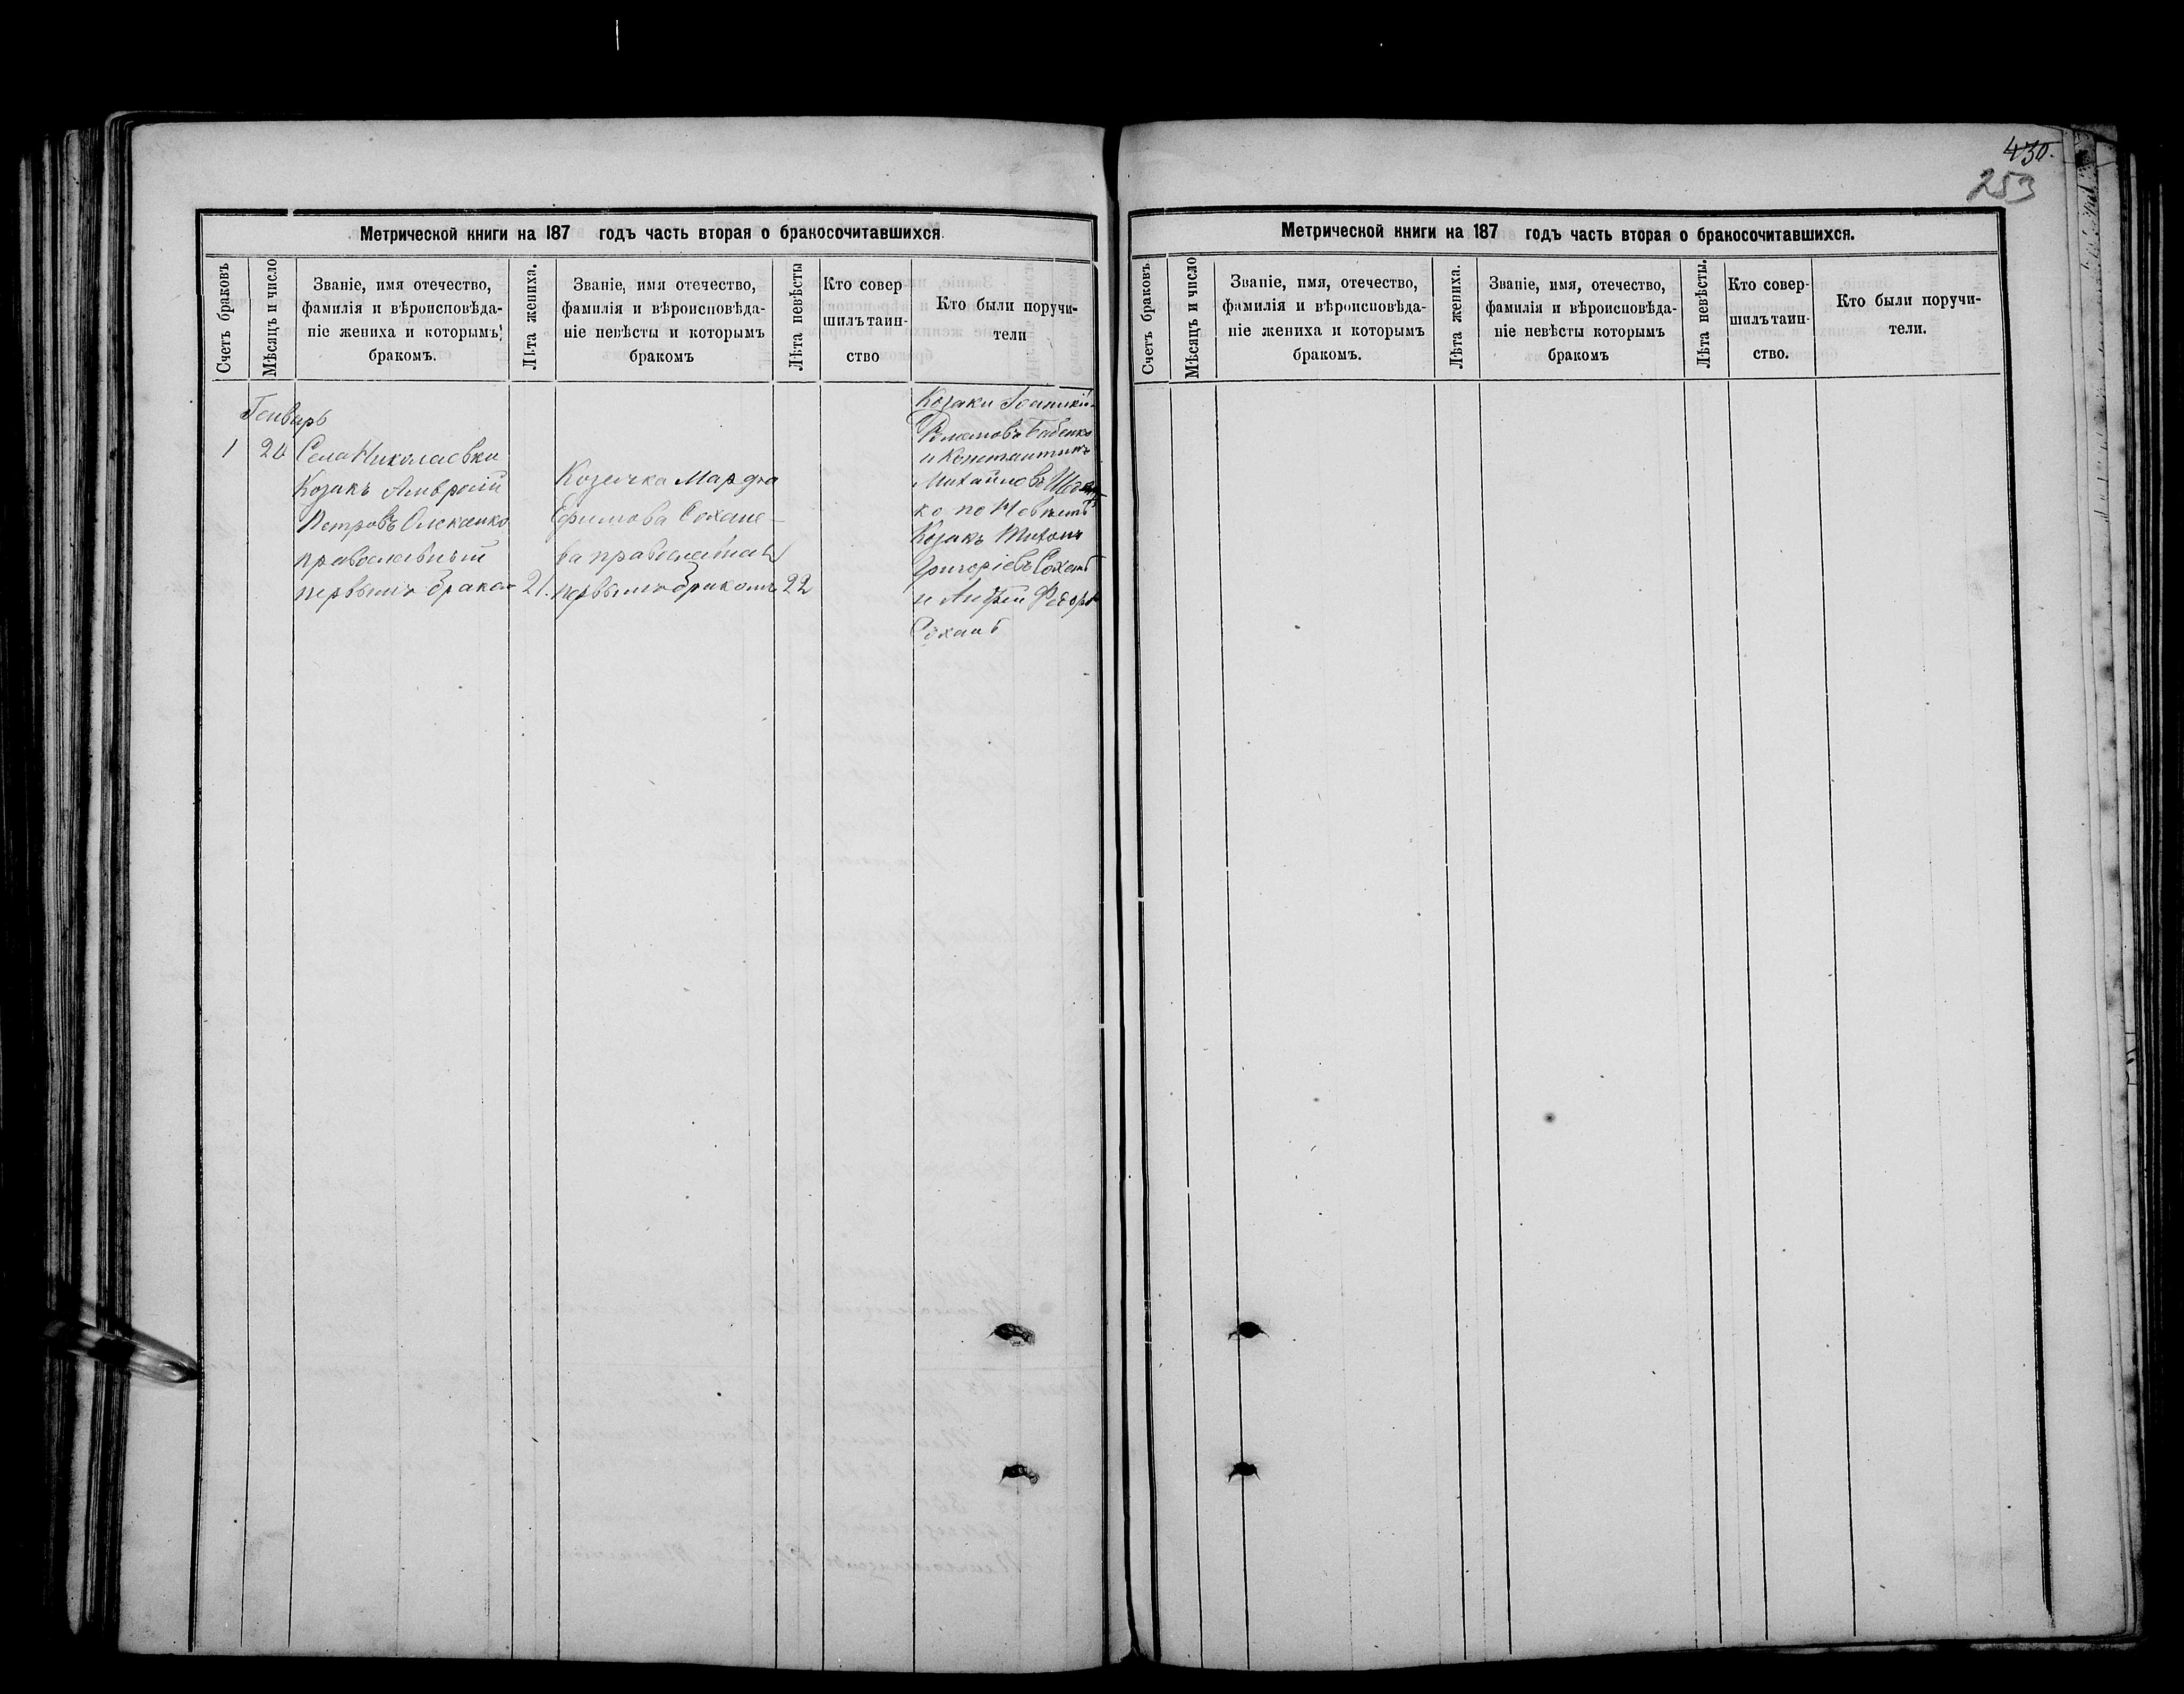 430.
253
Метрической книги на 187 годъ часть вторая о бракосочитавшихся
Счетъ браковъ
Мѣсяцъ и число
Званіе, имя отечество,
фамилія и вѣроисповѣда-
ніе жениха и которымъ
бракомъ.
Лѣта жениха.
Званіе, имя отечество,
фамилія и вѣроисповѣда-
ніе невѣсты и которымъ
бракомъ
Лѣта невѣсты
Кто совер-
шилъ таин-
ство
Кто были поручи-
тели
Генварь
1
20
Села Николаевки
Козакъ Амвросій
Петровъ
православный
первымъ бракомъ
21.
Козачка Марфа
Ефимова Сохане-
ва православная
первымъ бракомъ
22
Козаки
Бабенко
и Константинъ
Михайловъ
ко по Невѣстѣ
Козакъ Тихонъ
Григоріевъ Сохань
и Федоровъ
Сохань
Метрической книги на 187 годъ часть вторая о бракосочитавшихся.
Счетъ браковъ
Мѣсяцъ и число
Званіе, имя, отечество,
фамилія и вѣроисповѣда-
ніе жениха и которымъ
бракомъ.
Лѣта жениха.
Званіе, имя, отечество,
фамилія и вѣроисповѣда-
ніе невѣсты которымъ
бракомъ
Лѣта невѣсты.
Кто совер-
шилъ таин-
ство.
Кто были поручи-
тели.